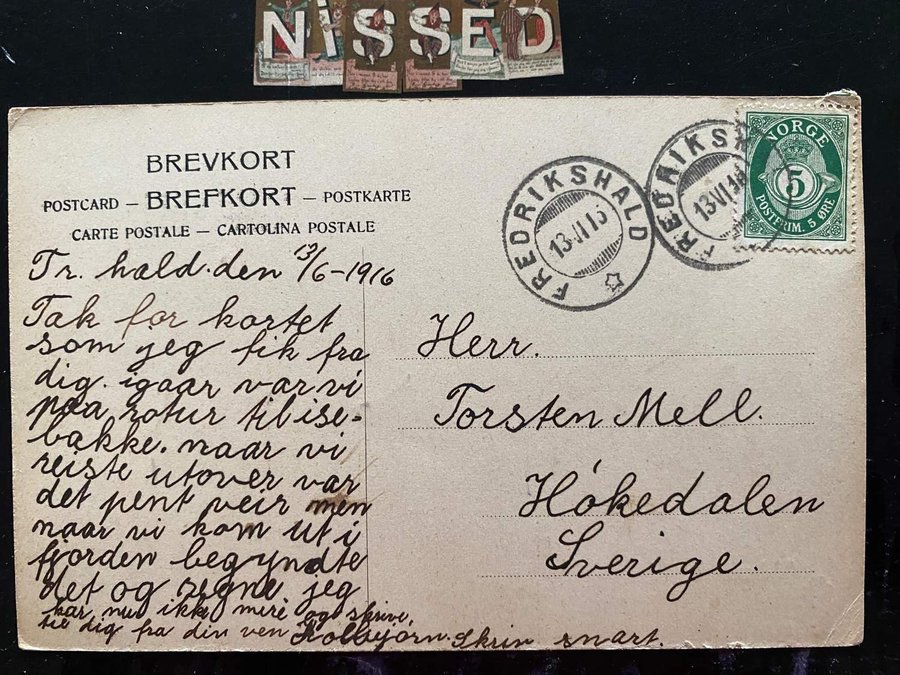 NISSED
BREVKORT
POSTCARD – BREFKORT – POSTKARTE
CARTE POSTALE – CARTOLINA POSTALE
FREDRIKSHALD
13 VI 16
FREDRIKSHALD
13 VI 16
NORGE
5
POSTFRIM. 5 ØRE
Fr. hald. den 13/6–1916
Tak for kortet
som jeg fik fra
dig. igaar var vi
paa rotur til ise-
bakke. naar vi
reiste utover var
det pent veir men
naar vi kom ut i
fjorden begyndte
det og regne jeg
har nu ikke mere og skrive,
til dig fra din ven Kolbjørn. Skriv snart.
Herr.
Torsten Mell.
Hökedalen
Sverige.